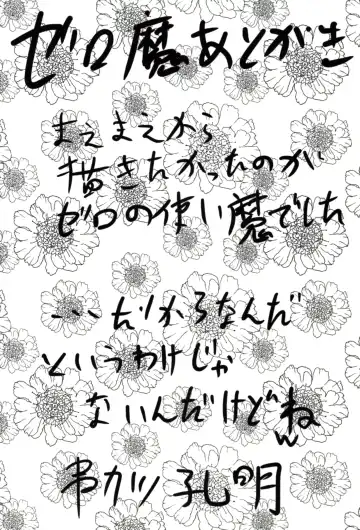 ゼロ魔あとがき
まえまえから
描きたかったのが
ゼロの使い魔でした
…だからなんだ
というわけじゃ
ないんだけどね
串カツ孔明